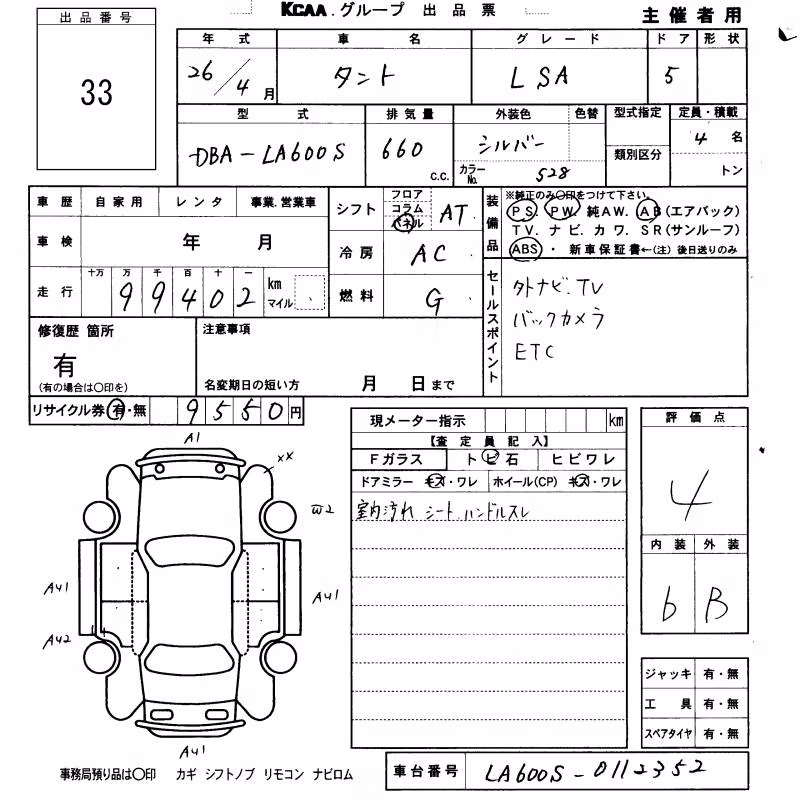 出品番号
33
KCAA.グループ 出品票
主催者用
年式 車名 グレード ドア 形状
26/4月 タント L SA 5
型式 排気量 外装色 色替 型式指定 定員・積載
DBA-LA600S 660 c.c. シルバー カラーNo. 528 類別区分 4名 トン
車歴 自家用 レンタ 事業.営業車
車検 年 月
走行 十万 万 千 百 十 一 km マイル
99402
シフト フロア コラム パネル AT
冷房 AC
燃料 G
装備品
※純正のみ〇印をつけて下さい。
PS. PW. 純AW. AB(エアバック)
TV. ナビ. カワ. SR(サンルーフ)
ABS・新車保証書←(注)後日送りのみ
セールスポイント
外ナビ.TV
バックカメラ
ETC
修復歴 箇所
有
(有の場合は〇印を)
注意事項
名変期日の短い方 月 日まで
リサイクル券 有・無 9550円
現メーター指示 km
【査定員記入】
Fガラス トビ石 ヒビワレ
ドアミラー キズ・ワレ ホイール(CP) キズ・ワレ
室内汚れ シート.ハンドルスレ
評価点
4
内装 外装
b B
ジャッキ 有・無
工具 有・無
スペアタイヤ 有・無
A1
XX
W2
A41
A41
A42
A41
事務局預り品は〇印 カギ シフトノブ リモコン ナビロム
車台番号 LA600S-0112352